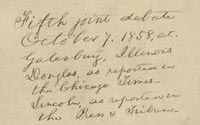 Fifth joint debate
October 7, 1858, at
Galesburg, Illinois
Douglas, as reported in
the Chicago Times.
Lincoln, as reported in
the Press & Tribune.